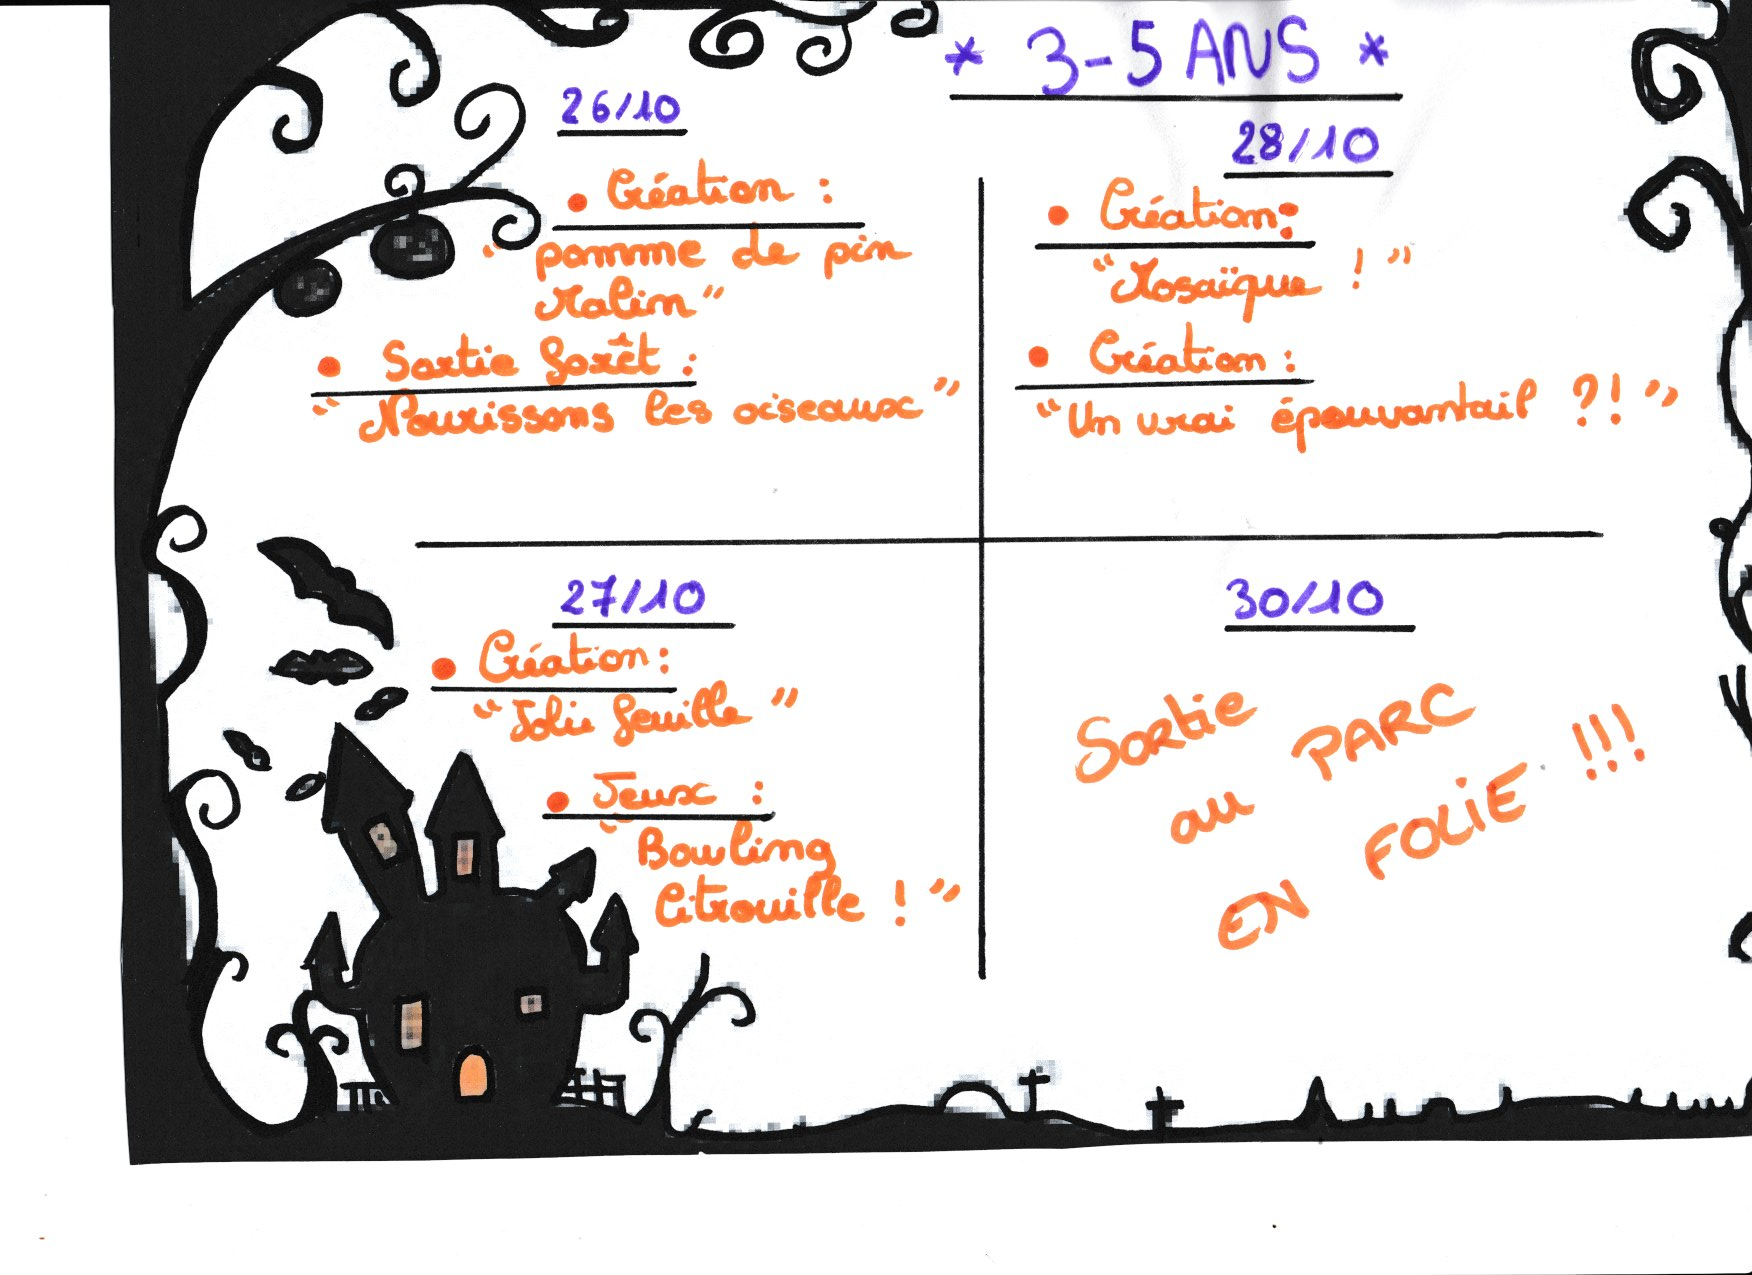 * 3-5 ANS *
26/10
• Création :
“ pomme de pin
Malin ”
• Sortie forêt :
“ Nourissons les oiseaux ”
28/10
• Création :
“ Mosaïque ! ”
• Création :
“ Un vrai épouvantail ?! ”
27/10
• Création :
“ Jolie feuille ”
• Jeux :
“ Bowling
Citrouille ! ”
30/10
Sortie
au PARC
EN FOLIE !!!